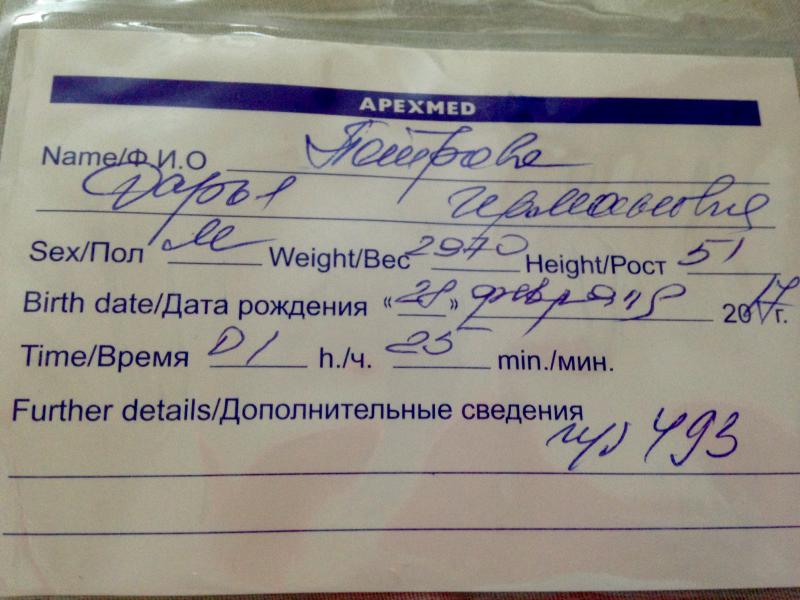 APEXMED
Name/Ф.И.О Петрова
Дарья Германовна
Sex/Пол м Weight/Вес 2970 Height/Рост 51
Birth date/Дата рождения «28» февраля 2017г.
Time/Время 01 h./ч. 25 min./мин.
Further details/Дополнительные сведения
493